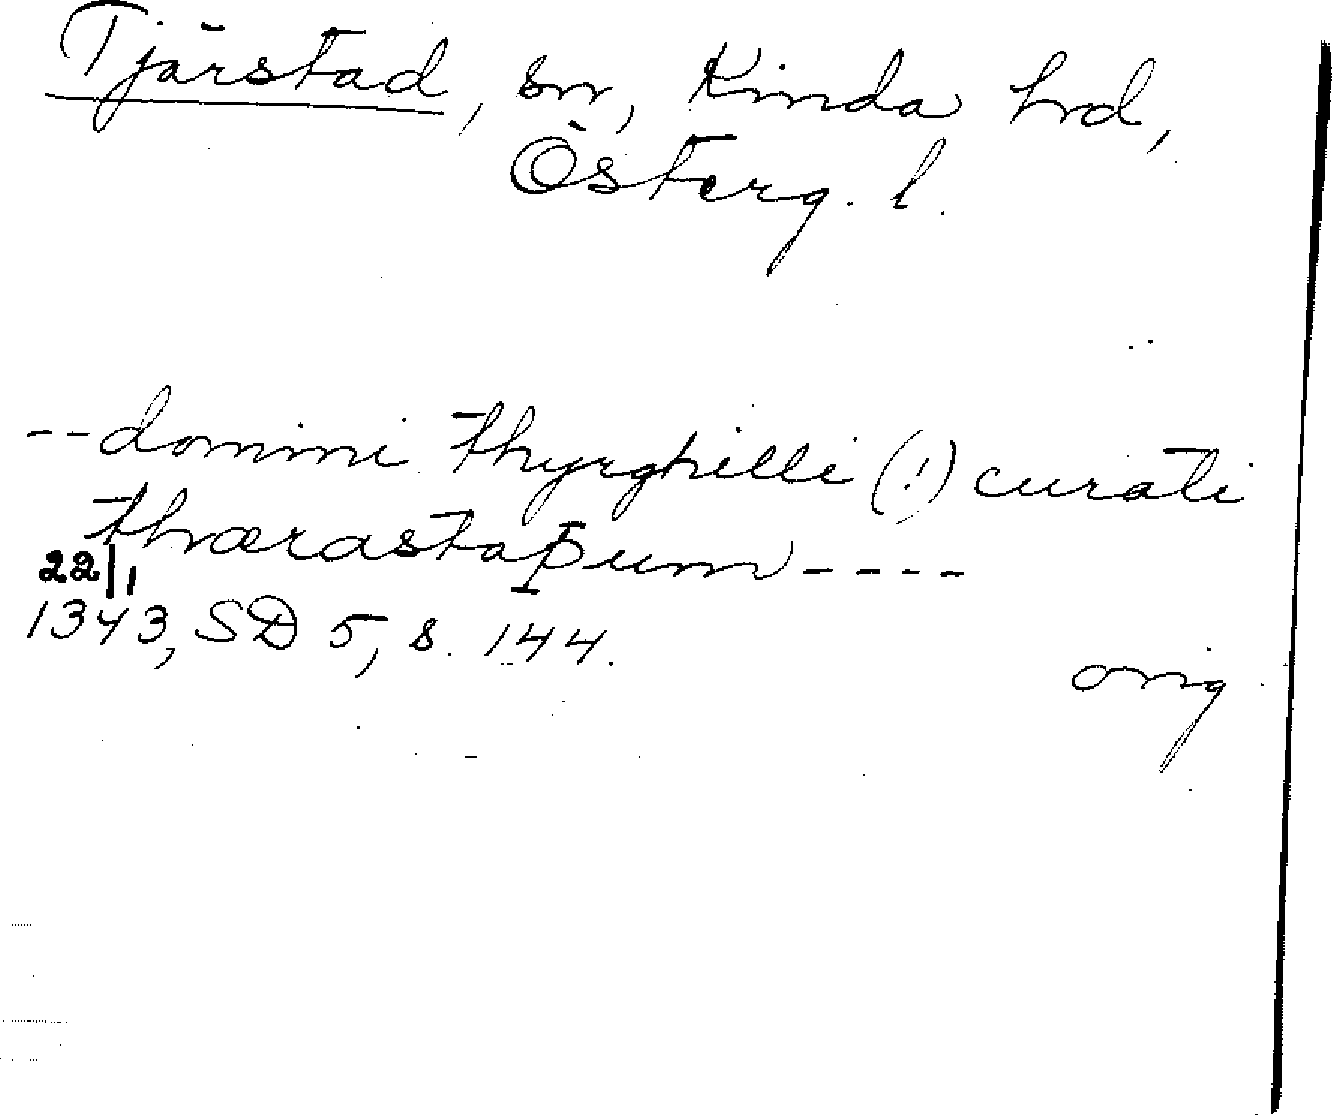 Tjärstad, sn, Kinda hrd,
Österg. l.
--domini thyrghilli (!) curati
thværastaþum ----
22/1
1343, SD 5, s. 144.
orig